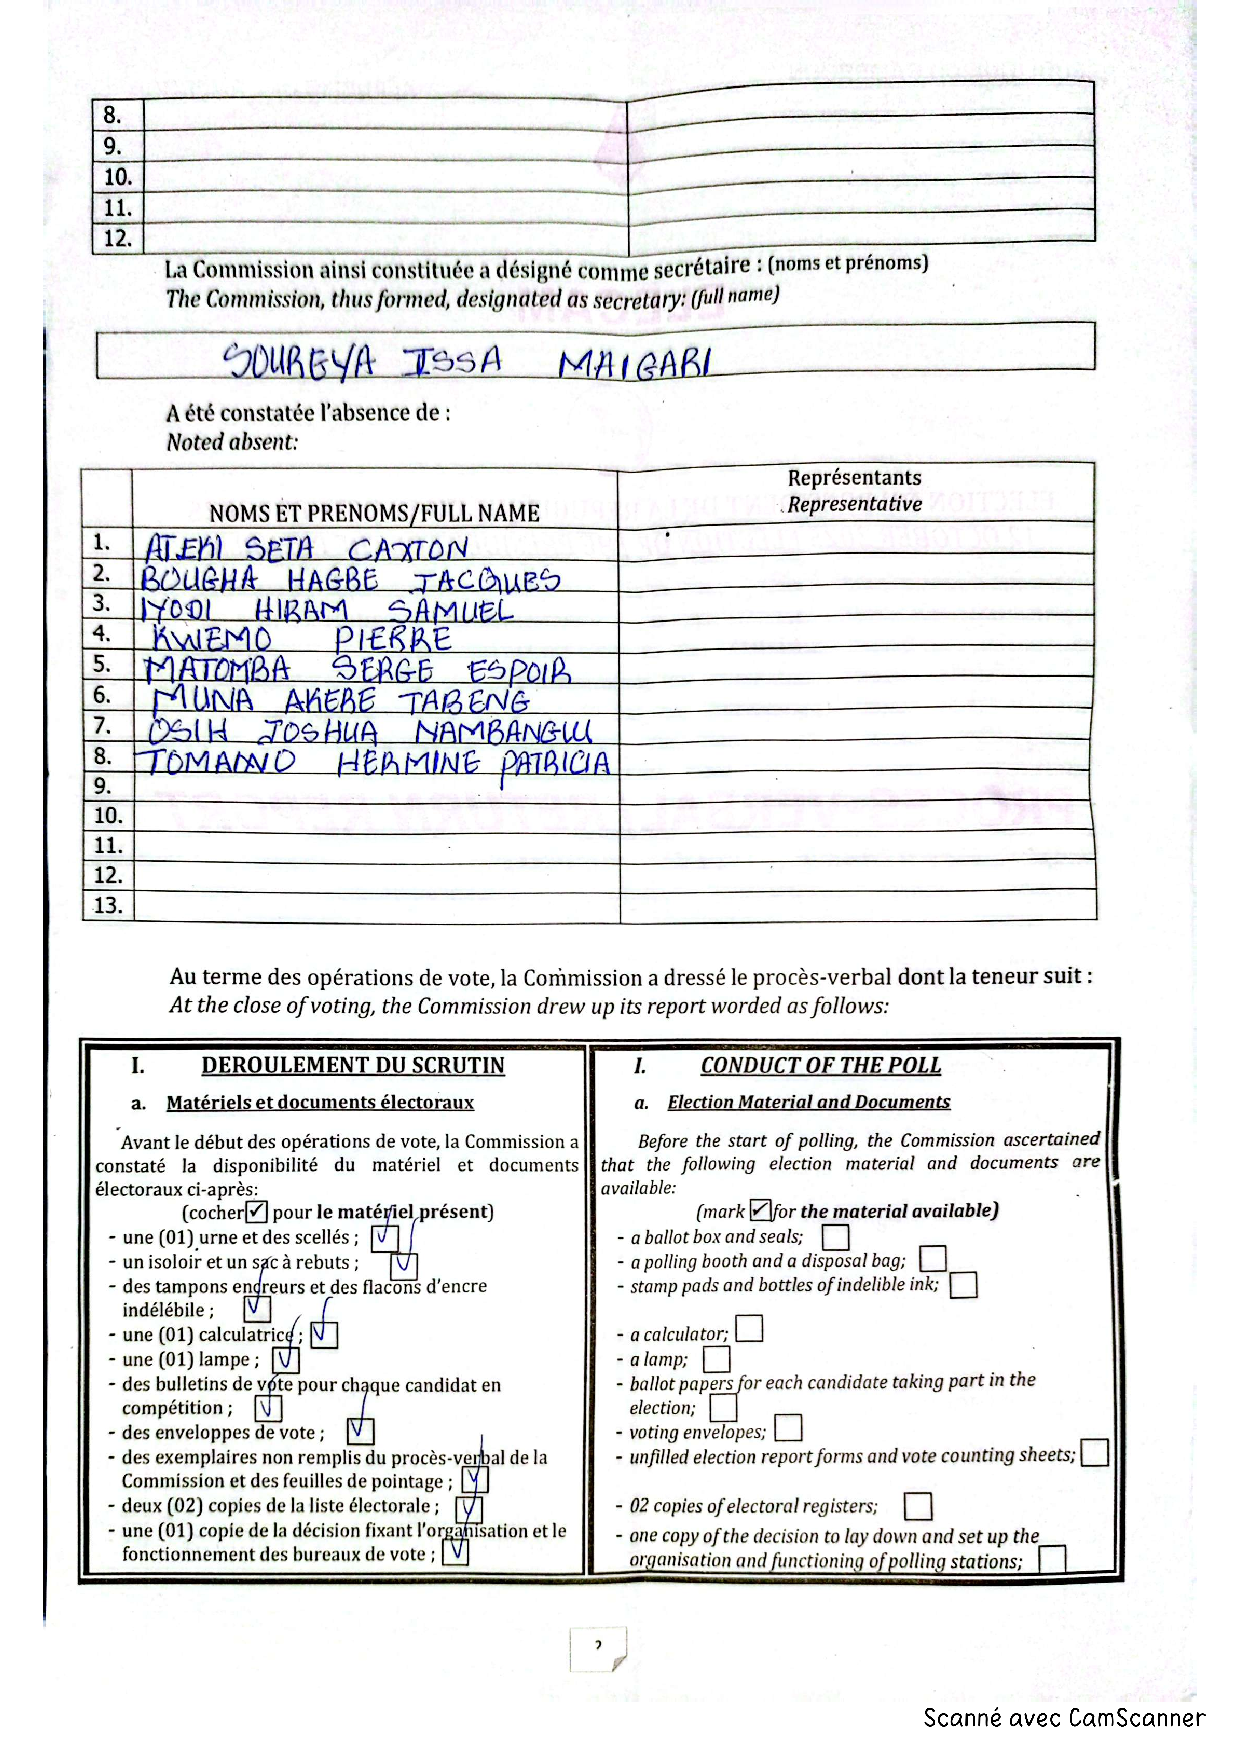 8.
9.
10.
11.
12.
La Commission ainsi constituée a désigné comme secrétaire : (noms et prénoms)
The Commission, thus formed, designated as secretary: (full name)
SOUREYA ISSA MAIGARI
A été constatée l'absence de :
Noted absent:
NOMS ET PRENOMS/FULL NAME
Représentants
Representative
1. ATEKI SETA CAXTON
2. BOUGHA HAGBE JACQUES
3. IYODI HIRAM SAMUEL
4. KWEMO PIERRE
5. MATOMBA SERGE ESPOIR
6. MUNA AKERE TABENG
7. OSIH JOSHUA NAMBANGU
8. TOMAINO HERMINE PATRICIA
9.
10.
11.
12.
13.
Au terme des opérations de vote, la Commission a dressé le procès-verbal dont la teneur suit :
At the close of voting, the Commission drew up its report worded as follows:
I. DEROULEMENT DU SCRUTIN
a. Matériels et documents électoraux
Avant le début des opérations de vote, la Commission a
constaté la disponibilité du matériel et documents
électoraux ci-après:
(cocher ✓ pour le matériel présent)
- une (01) urne et des scellés ; ✓
- un isoloir et un sac à rebuts ; ✓
- des tampons encreurs et des flacons d'encre
indélébile ; ✓
- une (01) calculatrice ; ✓
- une (01) lampe ; ✓
- des bulletins de vote pour chaque candidat en
compétition ; ✓
- des enveloppes de vote ; ✓
- des exemplaires non remplis du procès-verbal de la
Commission et des feuilles de pointage ; ✓
- deux (02) copies de la liste électorale ; ✓
- une (01) copie de la décision fixant l'organisation et le
fonctionnement des bureaux de vote ; ✓
I. CONDUCT OF THE POLL
a. Election Material and Documents
Before the start of polling, the Commission ascertained
that the following election material and documents are
available:
(mark ✓ for the material available)
- a ballot box and seals;
- a polling booth and a disposal bag;
- stamp pads and bottles of indelible ink;
- a calculator;
- a lamp;
- ballot papers for each candidate taking part in the
election;
- voting envelopes;
- unfilled election report forms and vote counting sheets;
- 02 copies of electoral registers;
- one copy of the decision to lay down and set up the
organisation and functioning of polling stations;
2
Scanné avec CamScanner